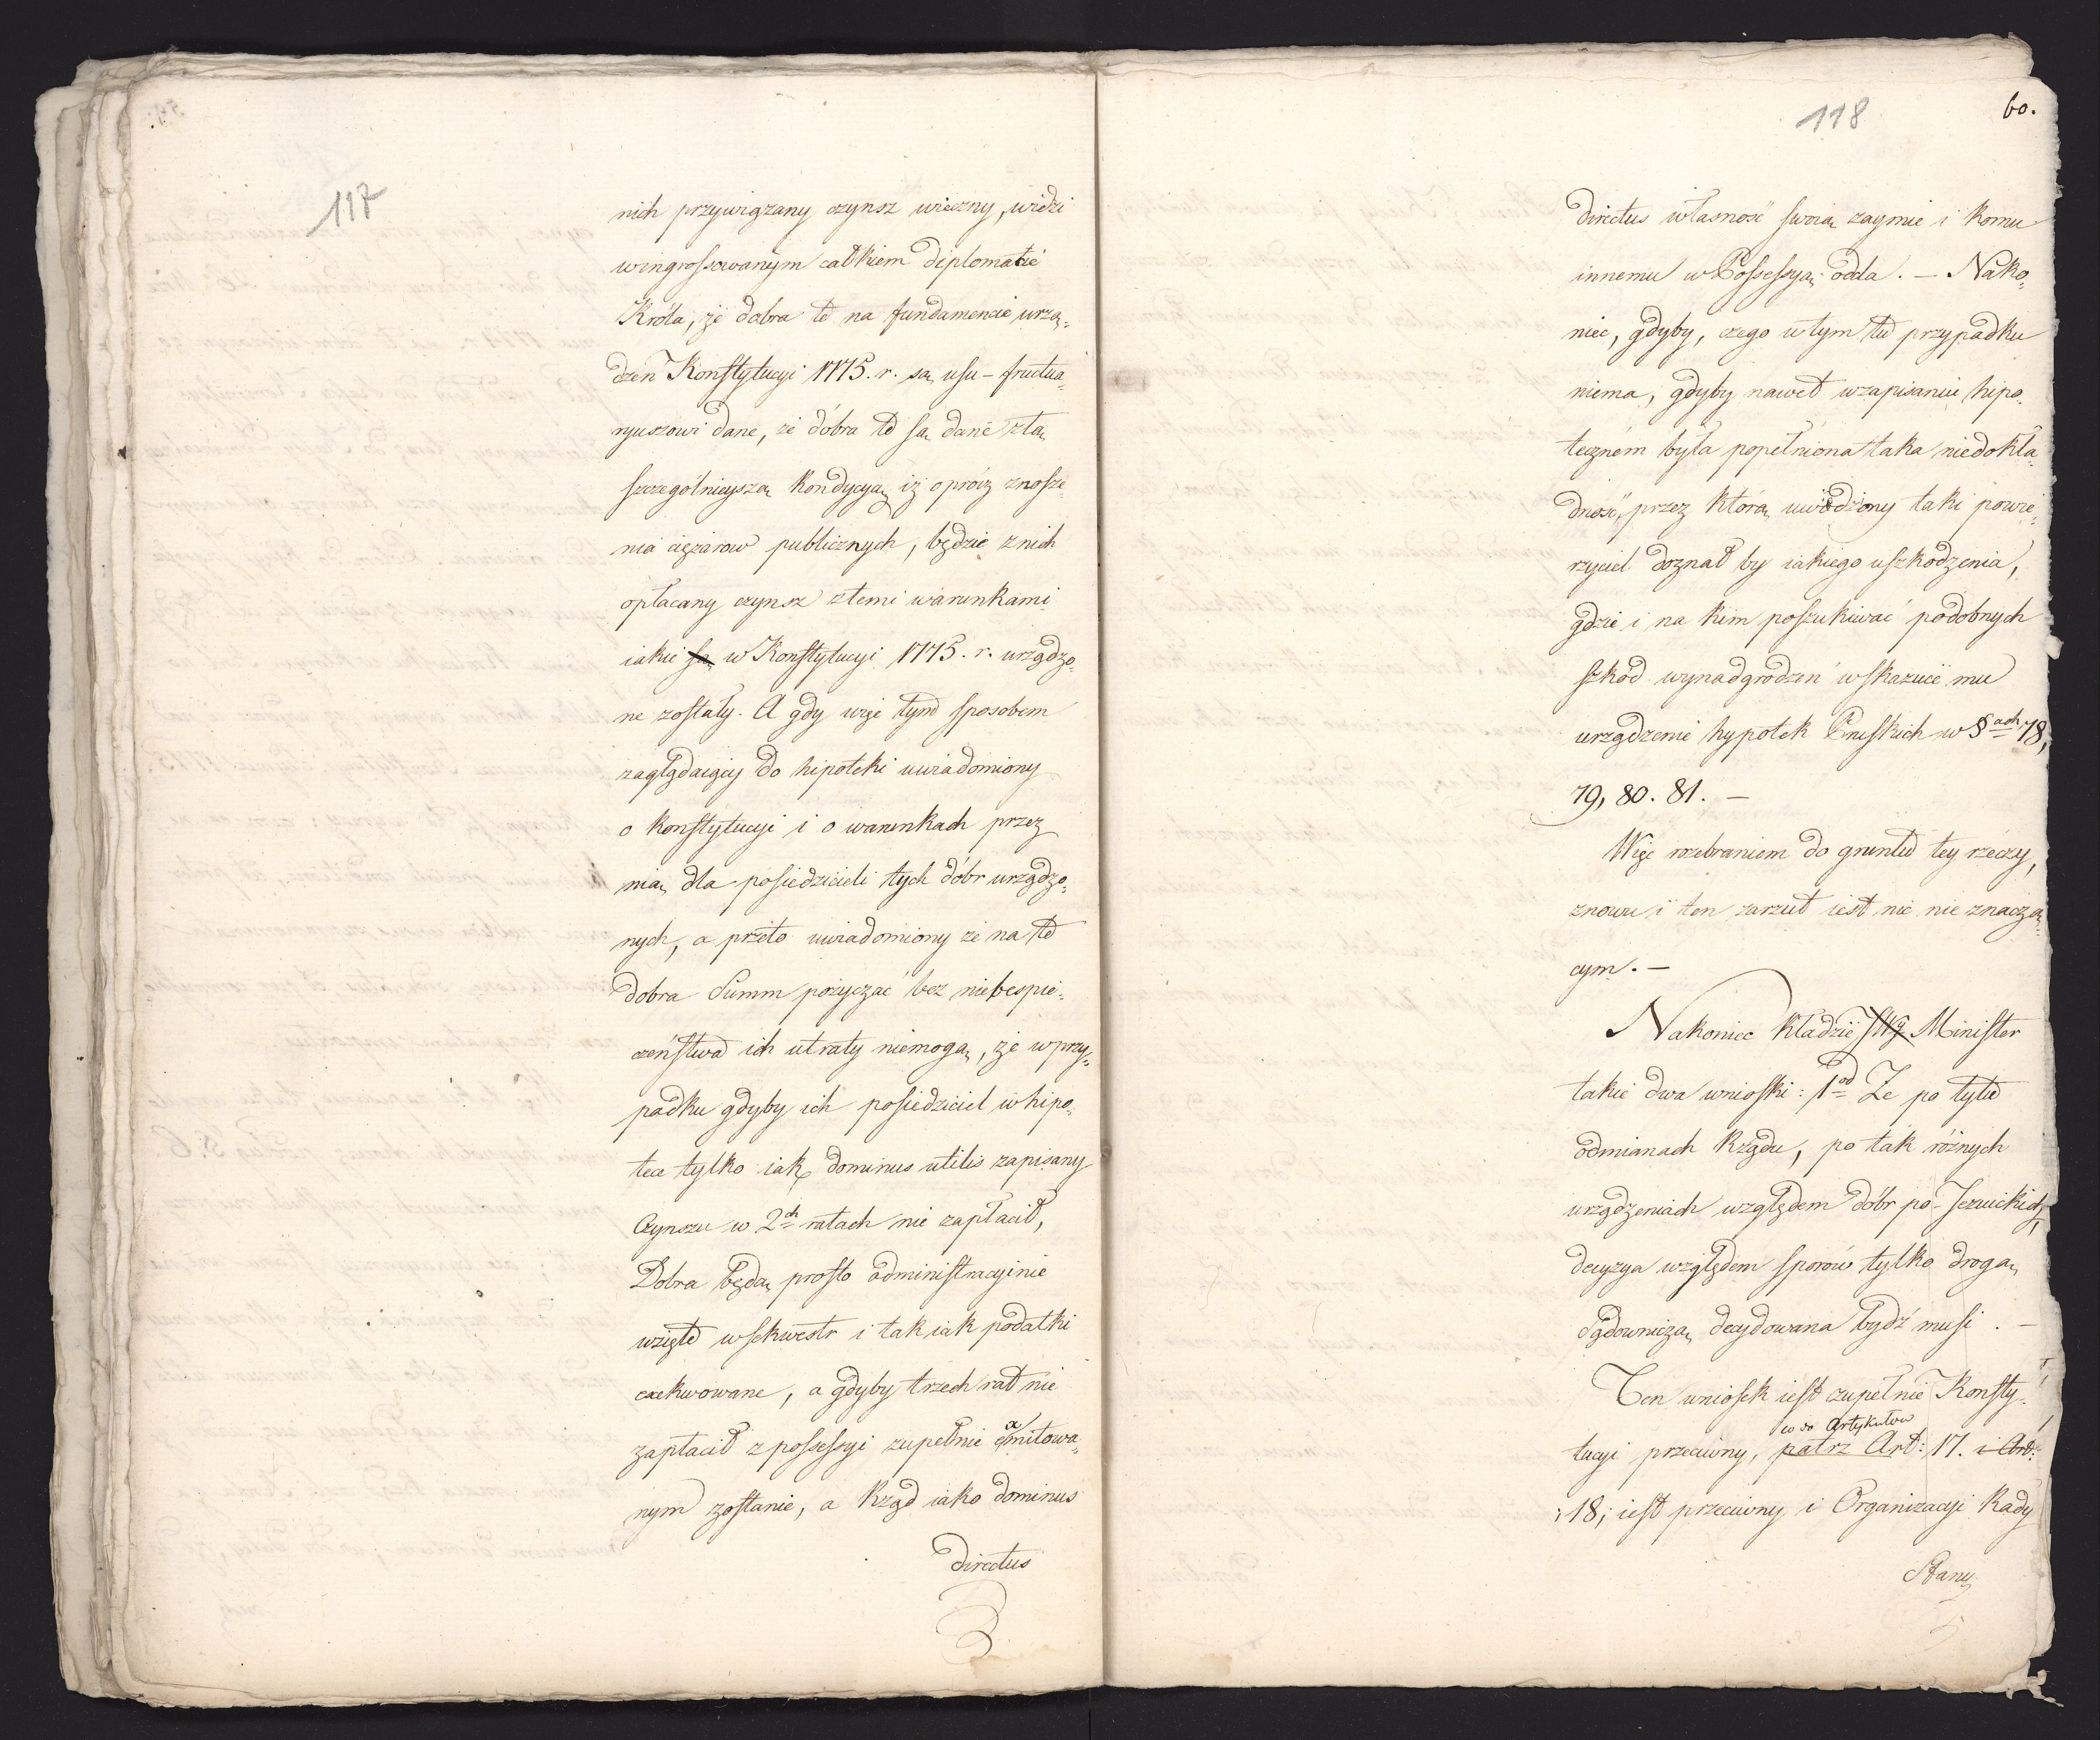 117
nich przywiązany czynsz wieczny, widzi
wingrossowanym całkiem diplomacie
Króla, że dobra te na fundamencie urzą=
dzeń Konstytucyi 1775. r. są usu-fructua=
ryuszowi dane, że dobra te są dane z tą
szczególnieyszą kondycyą, iż oprócz znosze=
nia ciężarow publicznych, będzie z nich
opłacany czynsz z temi warunkami
iakie są w Konstytucyi 1775. r. urządzo=
ne zostały. A gdy więc tym sposobem
zaglądaiący do hipoteki uwiadomiony
o konstytucyi i o warunkach przez
nią dla posiedzicieli tych dóbr urządzo=
nych, a przeto uwiadomiony że na te
dobra Summ pożyczać bez niebespie=
czeństwa ich utraty niemogą, że w przy=
padku gdyby ich posiedziciel w hipo=
tece tylko iako dominus utilis zapisany
Czynszu w 2ch ratach nie zapłacił,
Dobra będą prosto administracyinie
wzięte w sekwestr i tak iak podatki
exekwowane, a gdyby trzech rat nie
zapłacił z possessyi zupełnie exmitowa=
nym zostanie, a Rząd iako dominus
directus
118
60.
directus własność swoią zaymie i komu
innemu w Possessyą odda. — Nako=
niec, gdyby, czego w tym tu przypadku
niema, gdyby nawet w zapisaniu hipo=
teczném była popełniona taka niedokła=
dność, przez którą uwiedziony taki powie=
rzyciel doznał by iakiego uszkodzenia,
gdzie i na kim poszukiwać podobnych
szkód wynadgrodzeń wskazuie mu
urządzenie hypotek Pruskich w §ach 78,
79, 80. 81. —
Więc rozebraniem do gruntu tey rzeczy,
znowu i ten zarzut iest nic nie znaczą=
cym. —
Nakoniec kładzie JWy Minister
takie dwa wnioski: 1od Ze po tylu
odmianach Rządu, po tak róźnych
urządzeniach względem dóbr po-Jezuickich,
decyzya względem sporów tylko drogą
sądowniczą decydowana bydź musi. —
Ten wniosek iest zupełnie Konsty=
co do Artykułow
tucyi przeciwny, patrz Art: 17. i Art:
i 18; iest przeciwny i Organizacyi Rady
Stanu